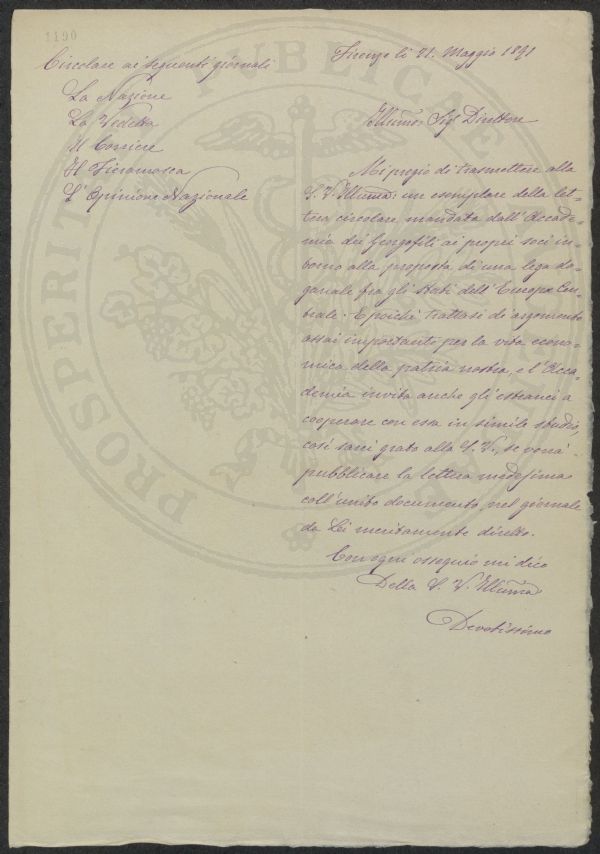 1190
Circolare ai seguenti giornali
La Nazione
La Vedetta
Il Corriere
Il Fieramosca
L'Opinione Nazionale
Firenze li 21. Maggio 1891
Illumo Sigr Direttore
Mi pregio di trasmettere alla
S. V. Illuma un esemplare della let-
tera circolare mandata dall'Accade-
mia dei Georgofili ai propri soci in-
torno alla proposta di una lega do-
ganale fra gli Stati dell'Europa Cen-
trale. E poiché trattasi di argomento
assai importante per la vita econo-
mica della patria nostra, e l'Acca-
demia invita anche gli estranei a
cooperare con essa in simile studio,
così sarei grato alla S. V., se vorrà
pubblicare la lettera medesima
coll'unito documento, nel giornale
da Lei meritamente diretto.
Con ogni ossequio mi dico
Della S. V. Illuma
Devotissimo
PROSPERITATI PUBLICAE